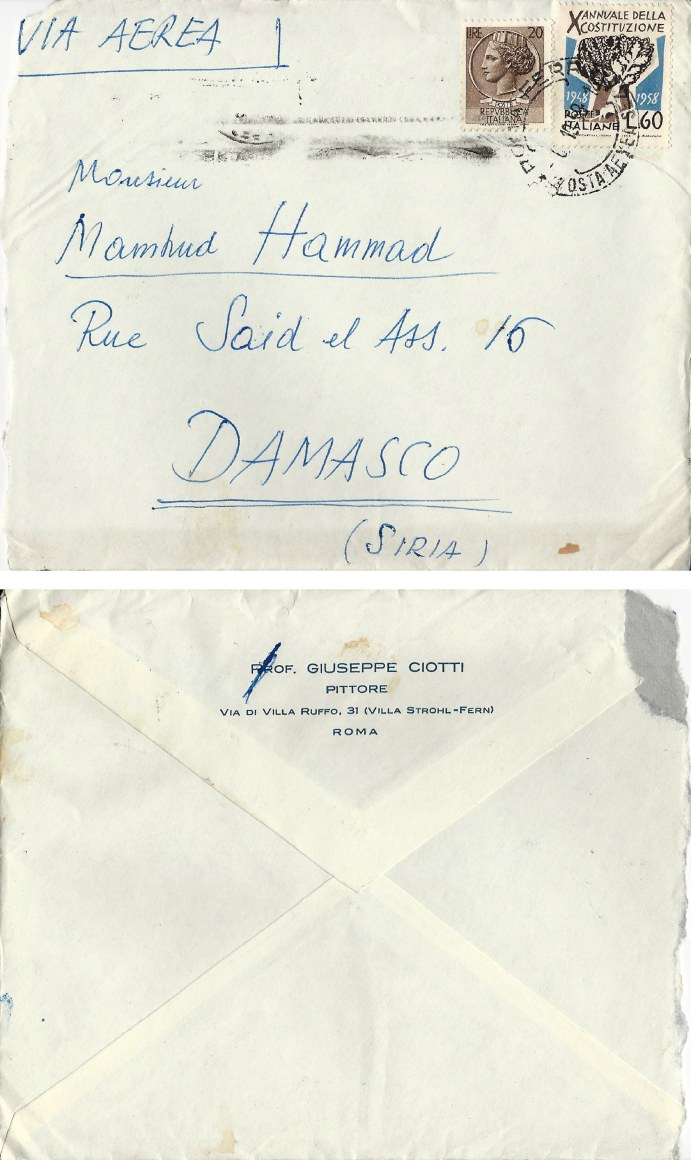 VIA AEREA
LIRE 20
POSTE
REPVBBLICA
ITALIANA
X ANNUALE DELLA
COSTITUZIONE
1948 1958
POSTE
ITALIANE L.60
POSTA AEREA
Monsieur
Mamhud Hammad
Rue Said el Ass. 16
DAMASCO
(SIRIA)
PROF. GIUSEPPE CIOTTI
PITTORE
VIA DI VILLA RUFFO, 31 (VILLA STROHL-FERN)
ROMA